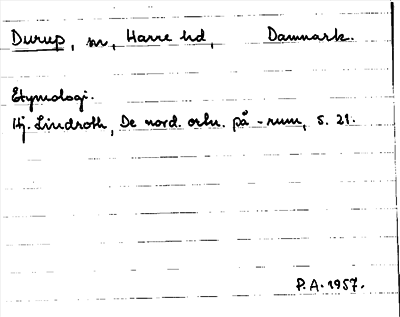 Durup, sn, Harre hd, Danmark.
Etymologi.
Hj. Lindroth, De nord. ortn. på -rum, s. 21.
P.A. 1957.